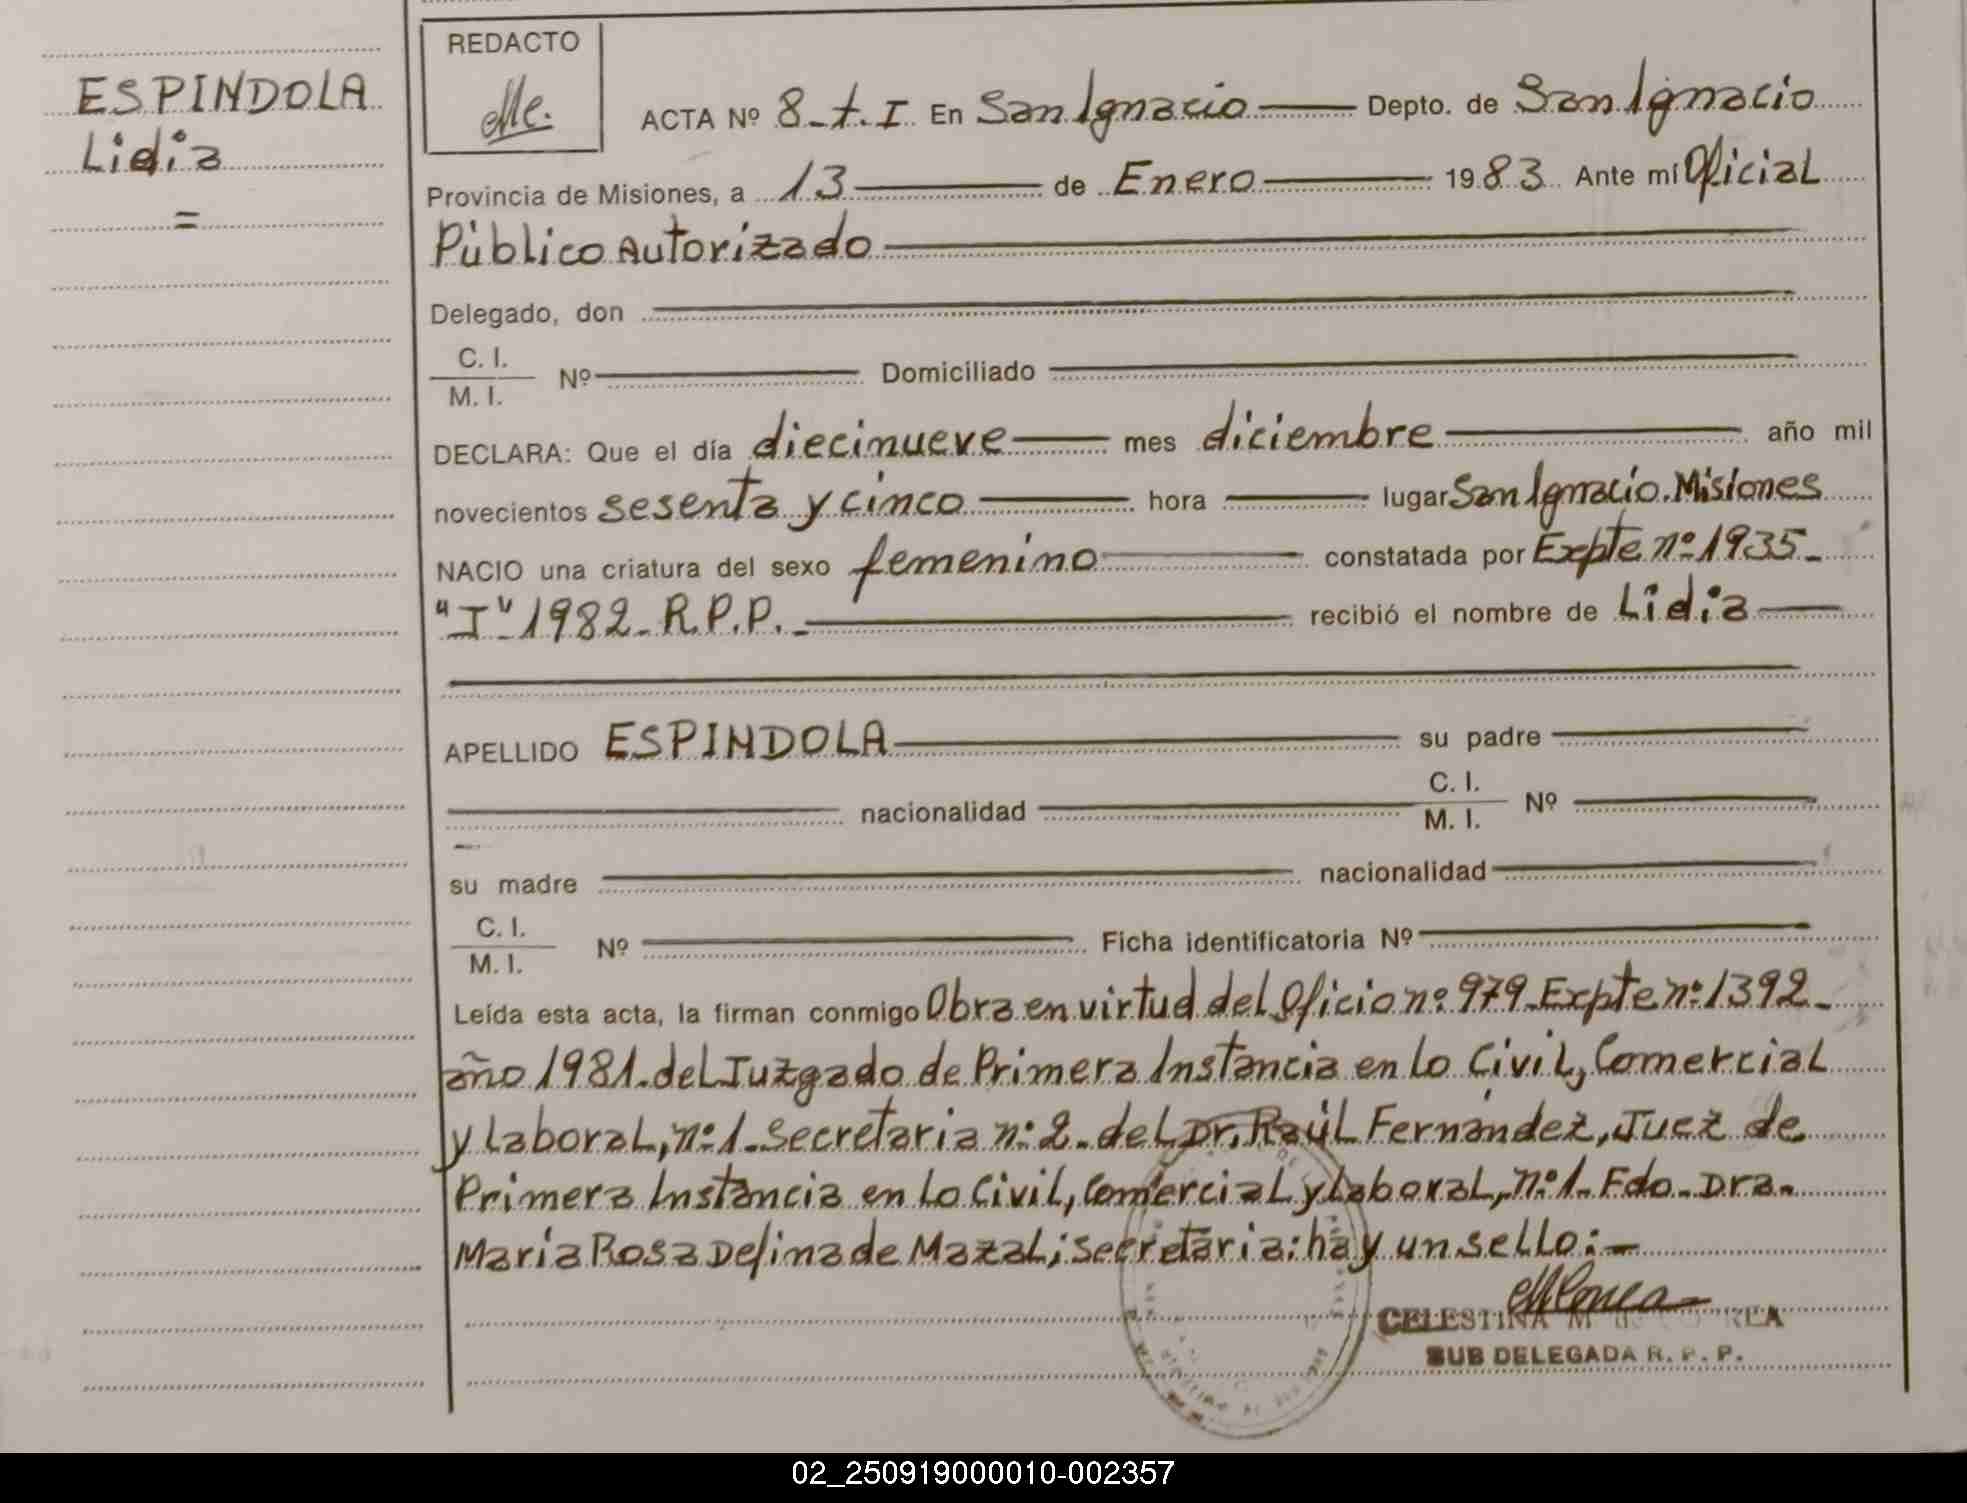 ESPINDOLA
Lidia
=
REDACTO
ACTA Nº 8-t.I En San Ignacio Depto. de San Ignacio
Provincia de Misiones, a 13 de Enero 1983 Ante mí Oficial
Público Autorizado
Delegado, don
C. I.
M. I. Nº Domiciliado
DECLARA: Que el día diecinueve mes diciembre año mil
novecientos sesenta y cinco hora lugar San Ignacio. Misiones
NACIO una criatura del sexo femenino constatada por Expte nº 1935-
"I" 1982-R.P.P.- recibió el nombre de Lidia
APELLIDO ESPINDOLA su padre
nacionalidad C. I.
M. I. Nº
su madre nacionalidad
C. I.
M. I. Nº Ficha identificatoria Nº
Leída esta acta, la firman conmigo Obra en virtud del Oficio nº 979-Expte nº 1392-
año 1981.del Juzgado de Primera Instancia en lo Civil, Comercial
y Laboral, nº 1-Secretaria nº 2-del Dr. Raúl Fernández, Juez de
Primera Instancia en lo Civil, Comercial y Laboral, nº 1-Fdo-Dra.
María Rosa de Mazal; secretaria: hay un sello:-
CELESTINA M de CORREA
SUB DELEGADA R. P. P.
02_250919000010-002357